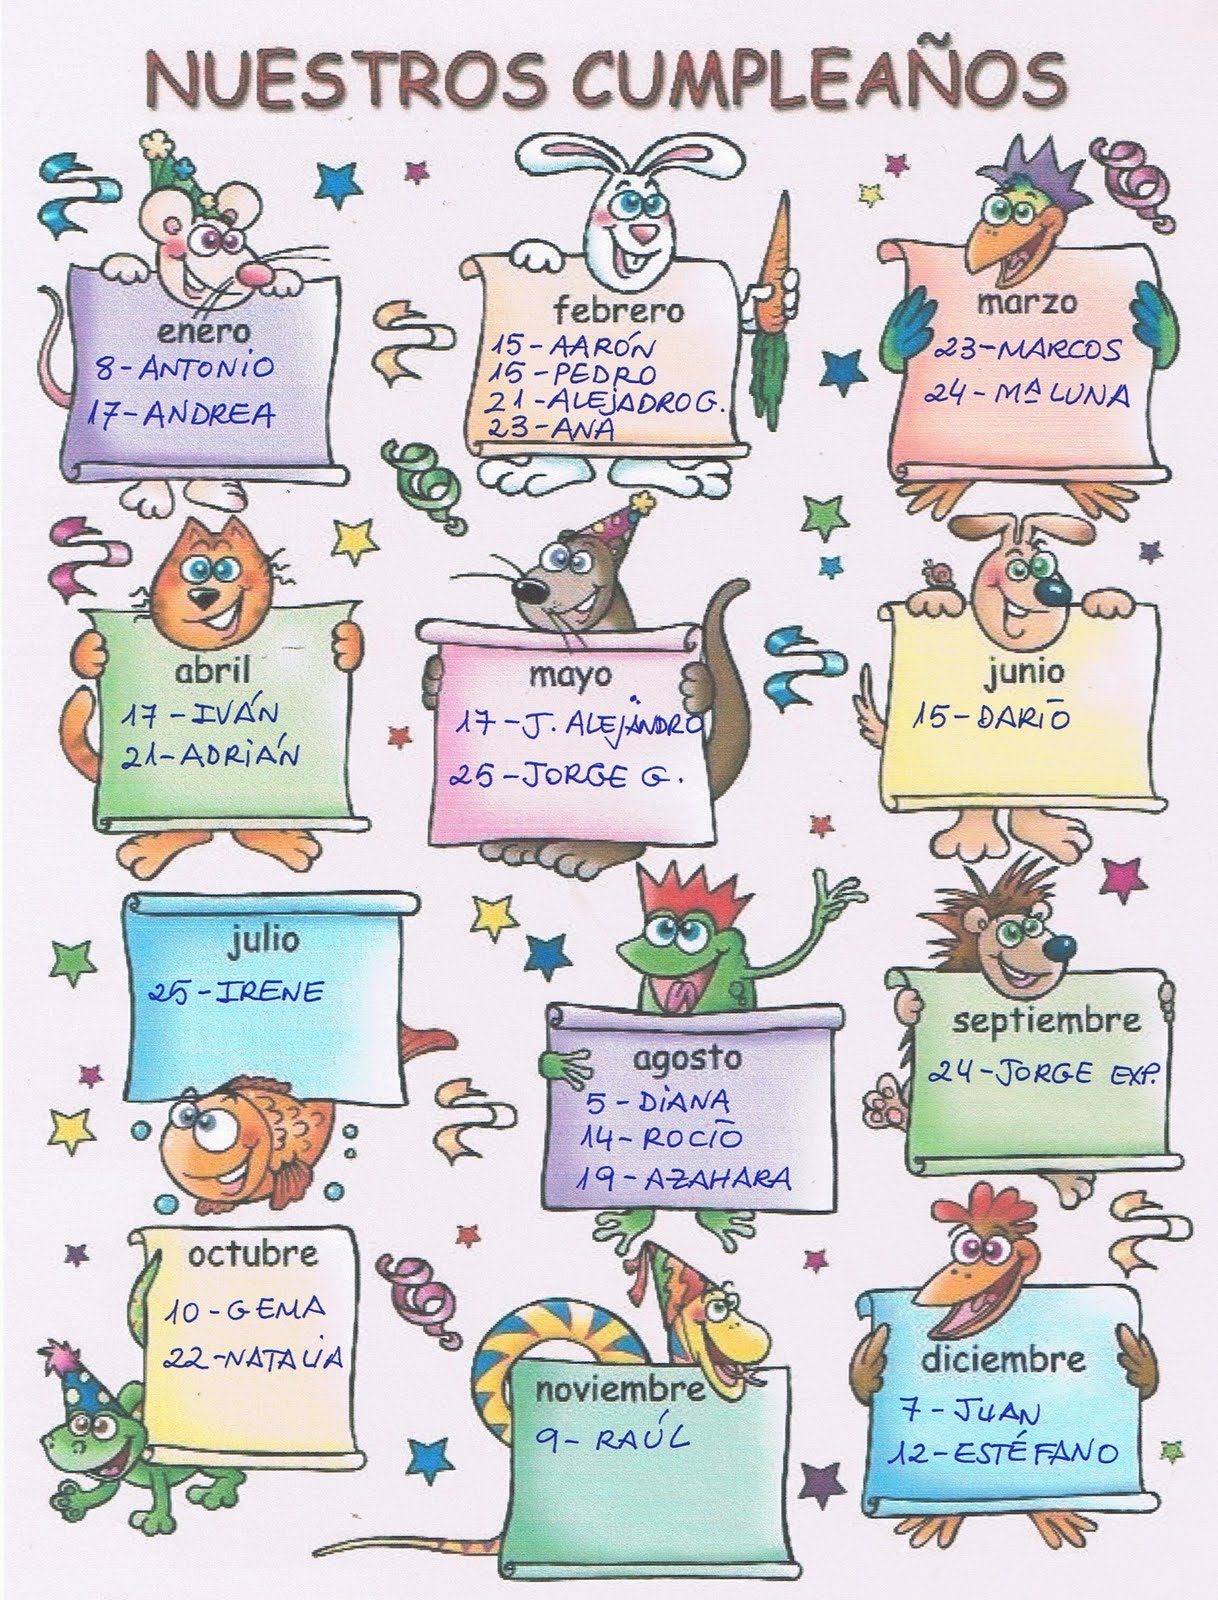 NUESTROS CUMPLEAÑOS
enero
8-ANTONIO
17-ANDREA
febrero
15-AARÓN
15-PEDRO
21-ALEJADRO G.
23-ANA
marzo
23-MARCOS
24-Mª LUNA
abril
17-IVÁN
21-ADRIÁN
mayo
17-J. ALEJANDRO
25-JORGE G.
junio
15-DARÍO
julio
25-IRENE
agosto
5-DIANA
14-ROCÍO
19-AZAHARA
septiembre
24-JORGE EXP.
octubre
10-GEMA
22-NATALIA
noviembre
9-RAÚL
diciembre
7-JUAN
12-ESTÉFANO